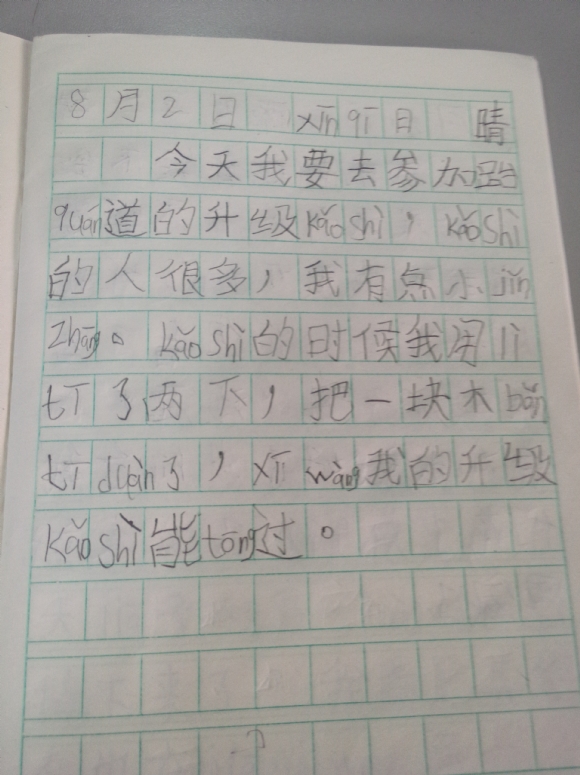 8月2日 xīn qī日 晴
今天我要去参加跆
quán道的升级kǎo shì，kǎo shì
的人很多，我有点小jǐn
zhāng。kǎo shì的时候我用lì
tī了两下，把一块木bǎn
tī duàn了，xī wàng我的升级
kǎo shì能tōng过。